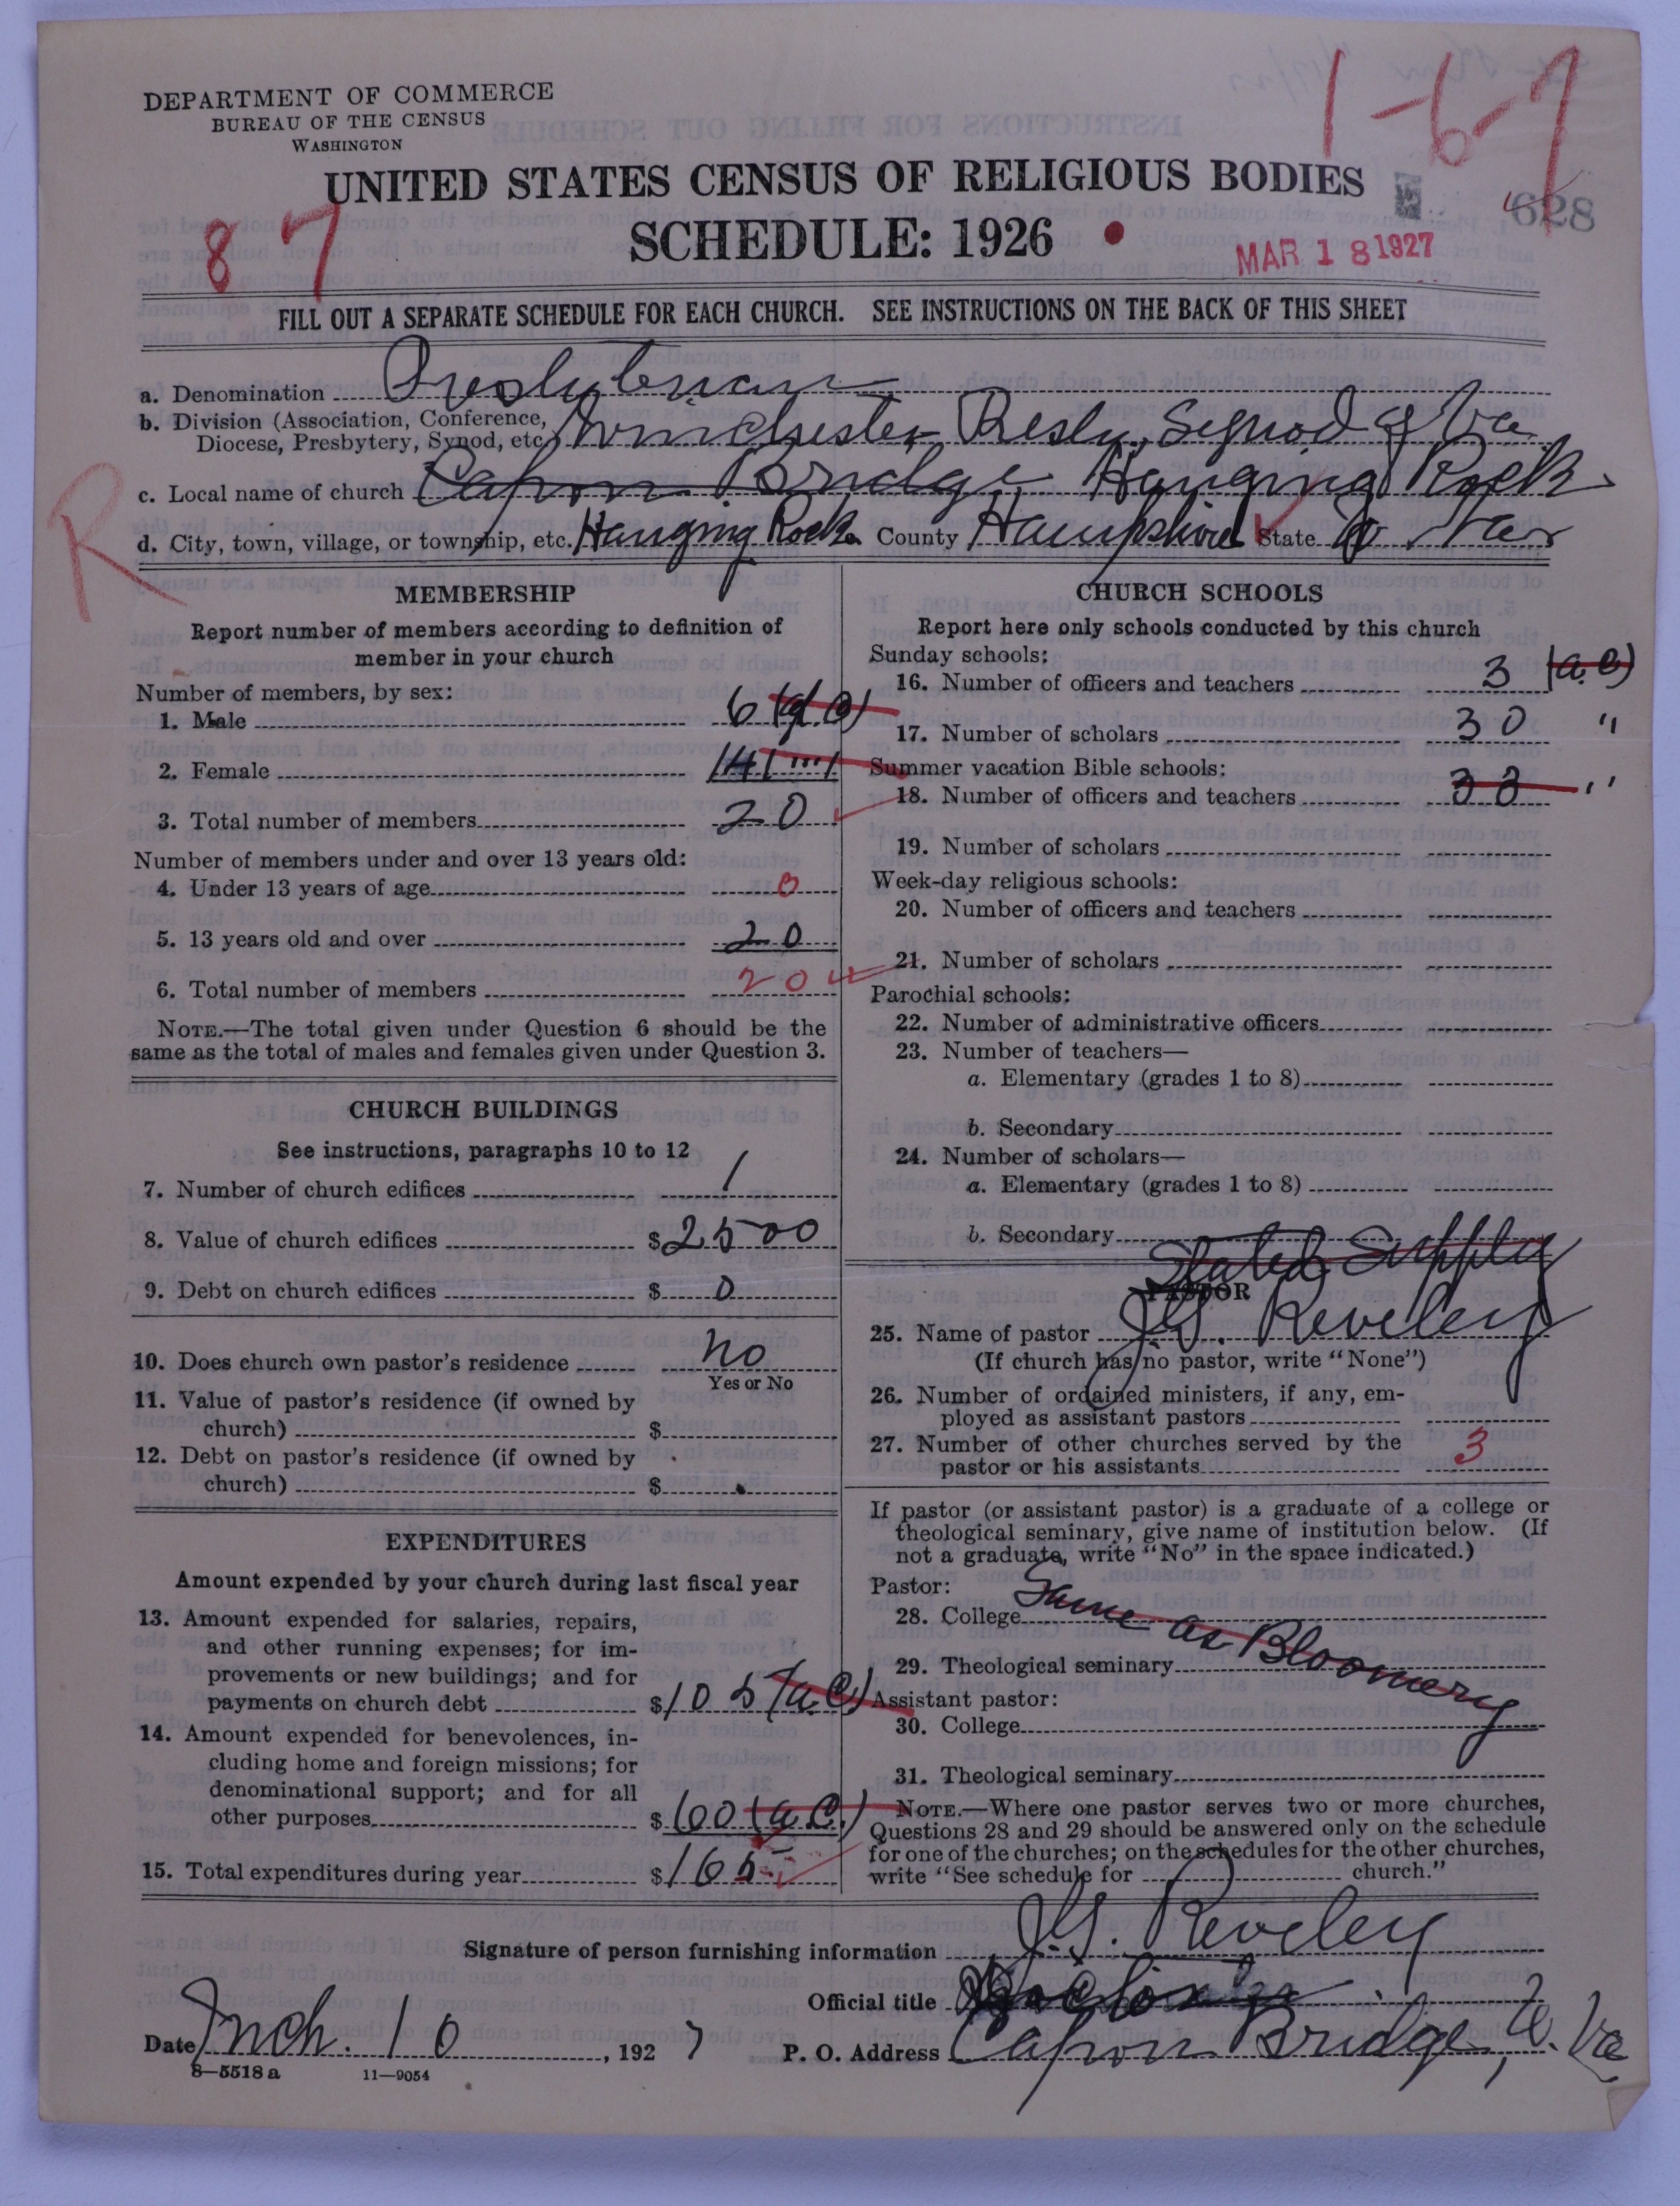 DEPARTMENT OF COMMERCE
BUREAU OF THE CENSUS
WASHINGTON
1-6-7
UNITED STATES CENSUS OF RELIGIOUS BODIES
SCHEDULE: 1926
628
87
MAR 18 1927
FILL OUT A SEPARATE SCHEDULE FOR EACH CHURCH. SEE INSTRUCTIONS ON THE BACK OF THIS SHEET
a. Denomination Presbyterian
b. Division (Association, Conference,
Diocese, Presbytery, Synod, etc.) Winchester Presby, Synod of Va
c. Local name of church Capon Bridge Hanging Rock
R
d. City, town, village, or township, etc. Hanging Rock County Hampshire State W Va
MEMBERSHIP
Report number of members according to definition of
member in your church
Number of members, by sex:
1. Male 6 (a c)
2. Female 14 ( " )
3. Total number of members 20
Number of members under and over 13 years old:
4. Under 13 years of age 0
5. 13 years old and over 20
6. Total number of members 20
NOTE.—The total given under Question 6 should be the
same as the total of males and females given under Question 3.
CHURCH BUILDINGS
See instructions, paragraphs 10 to 12
7. Number of church edifices 1
8. Value of church edifices $2500
9. Debt on church edifices $ 0
10. Does church own pastor's residence No
Yes or No
11. Value of pastor's residence (if owned by
church) $
12. Debt on pastor's residence (if owned by
church) $
EXPENDITURES
Amount expended by your church during last fiscal year
13. Amount expended for salaries, repairs,
and other running expenses; for im-
provements or new buildings; and for
payments on church debt $105 (a c)
14. Amount expended for benevolences, in-
cluding home and foreign missions; for
denominational support; and for all
other purposes $60 (a c.)
15. Total expenditures during year $165
CHURCH SCHOOLS
Report here only schools conducted by this church
Sunday schools:
16. Number of officers and teachers 3 (a.c)
17. Number of scholars 30 "
Summer vacation Bible schools:
18. Number of officers and teachers 33 "
19. Number of scholars
Week-day religious schools:
20. Number of officers and teachers
21. Number of scholars
Parochial schools:
22. Number of administrative officers
23. Number of teachers—
a. Elementary (grades 1 to 8)
b. Secondary
24. Number of scholars—
a. Elementary (grades 1 to 8)
b. Secondary
Stated Supply
PASTOR
25. Name of pastor J.G. Reveley
(If church has no pastor, write "None")
26. Number of ordained ministers, if any, em-
ployed as assistant pastors
27. Number of other churches served by the
pastor or his assistants 3
If pastor (or assistant pastor) is a graduate of a college or
theological seminary, give name of institution below. (If
not a graduate, write "No" in the space indicated.)
Pastor:
28. College Same as Bloomery
29. Theological seminary
Assistant pastor:
30. College
31. Theological seminary
NOTE.—Where one pastor serves two or more churches,
Questions 28 and 29 should be answered only on the schedule
for one of the churches; on the schedules for the other churches,
write "See schedule for church."
Signature of person furnishing information J.G. Reveley
Official title
Date Mch. 10, 1927
P. O. Address Capon Bridge, W. Va
8—5518 a
11—9054